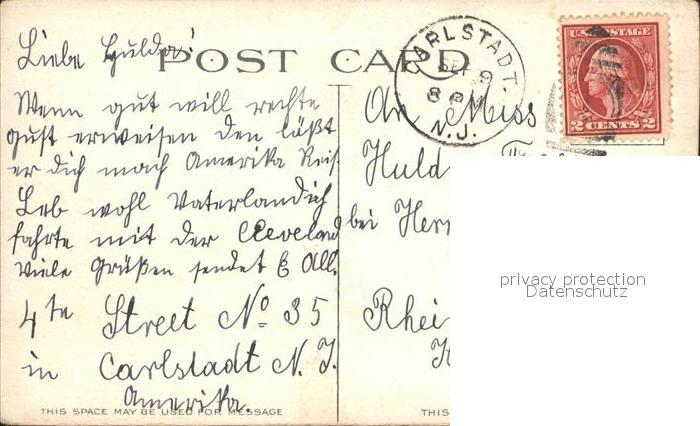 Liebe Hulda!
POST CARD
CARLSTADT.
SEP 9
8 PM
N.J.
U.S. POSTAGE
2 CENTS 2
Wenn gut will rechte
gust erweisen den läßt
er dich nach Amerika Reis.
Leb wohl Vaterland ich
fahrte mit der Cleveland
viele Grüßen sendet E All.
4te Street No 35
in Carlstadt N. J.
Amerika.
THIS SPACE MAY BE USED FOR MESSAGE
An Miss
Huld
bei Herr
Rhei
THIS
privacy protection
Datenschutz